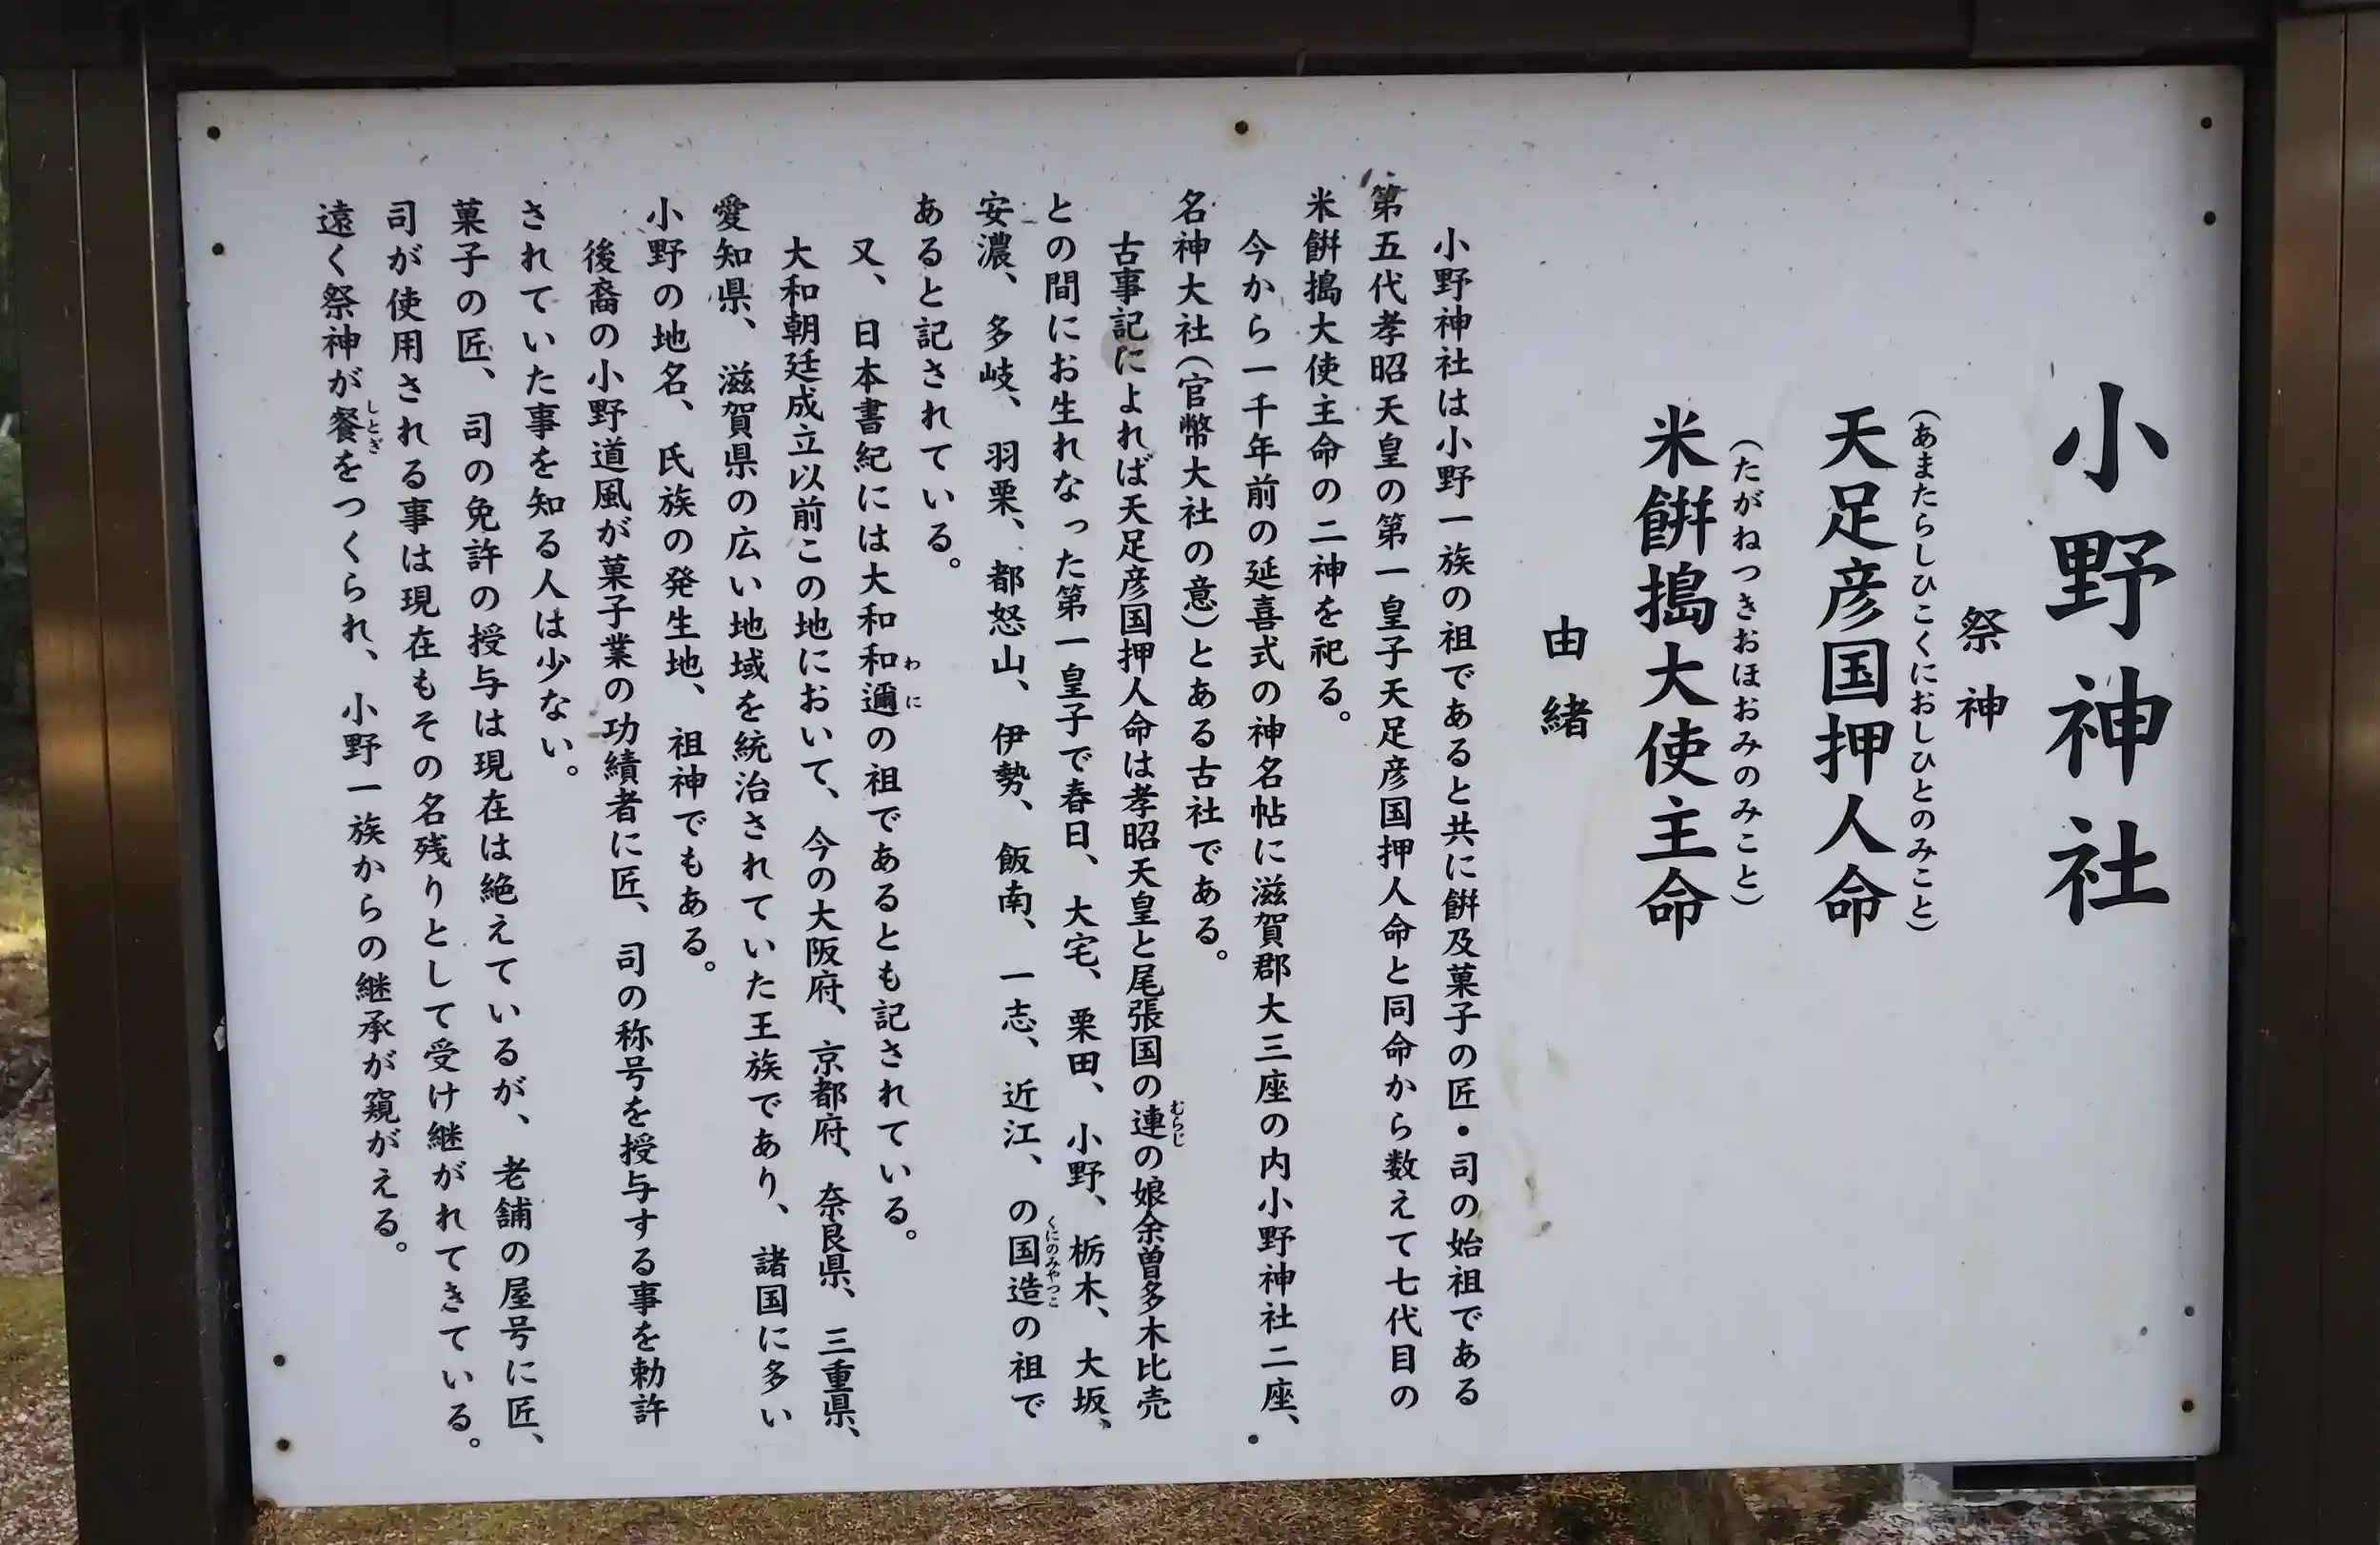 小野神社
祭神
(あまたらしひこくにおしひとのみこと)
天足彦国押人命
(たがねつきおほおみのみこと)
米餠搗大使主命
由緒
小野神社は小野一族の祖であると共に餠及菓子の匠・司の始祖である
第五代孝昭天皇の第一皇子天足彦国押人命と同命から数えて七代目の
米餠搗大使主命の二神を祀る。
今から一千年前の延喜式の神名帖に滋賀郡大三座の内小野神社二座、
名神大社(官幣大社の意)とある古社である。
古事記によれば天足彦国押人命は孝昭天皇と尾張国の連の娘余曽多木比売
むらじ
との間にお生れなった第一皇子で春日、大宅、栗田、小野、栃木、大坂、
安濃、多岐、羽栗、都怒山、伊勢、飯南、一志、近江、の国造の祖で
くにのみやつこ
あると記されている。
又、日本書紀には大和和邇の祖であるとも記されている。
わに
大和朝廷成立以前この地において、今の大阪府、京都府、奈良県、三重県、
愛知県、滋賀県の広い地域を統治されていた王族であり、諸国に多い
小野の地名、氏族の発生地、祖神でもある。
後裔の小野道風が菓子業の功績者に匠、司の称号を授与する事を勅許
されていた事を知る人は少ない。
菓子の匠、司の免許の授与は現在は絶えているが、老舗の屋号に匠、
司が使用される事は現在もその名残りとして受け継がれてきている。
遠く祭神が餐をつくられ、小野一族からの継承が窺がえる。
しとぎ